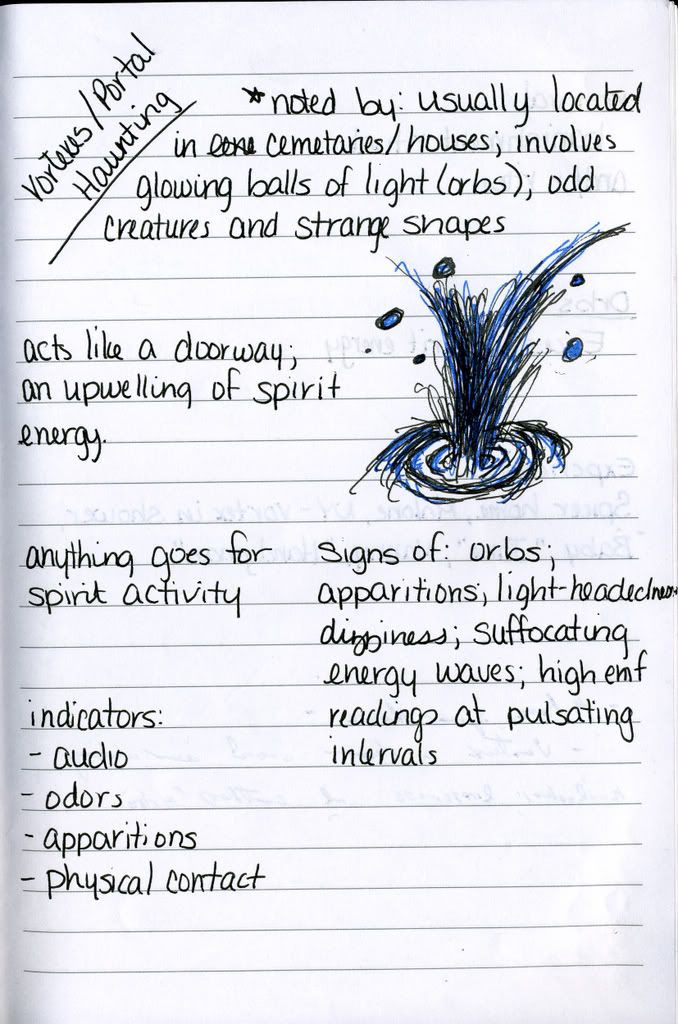 Vortexes/Portal
Haunting
*noted by: usually located
in cemetaries/houses; involves
glowing balls of light (orbs); odd
creatures and strange shapes
acts like a doorway;
an upwelling of spirit
energy.
anything goes for
spirit activity
Signs of: orbs;
apparitions; light-headedness
dizziness; suffocating
energy waves; high emf
readings at pulsating
intervals
indicators:
- audio
- odors
- apparitions
- physical contact